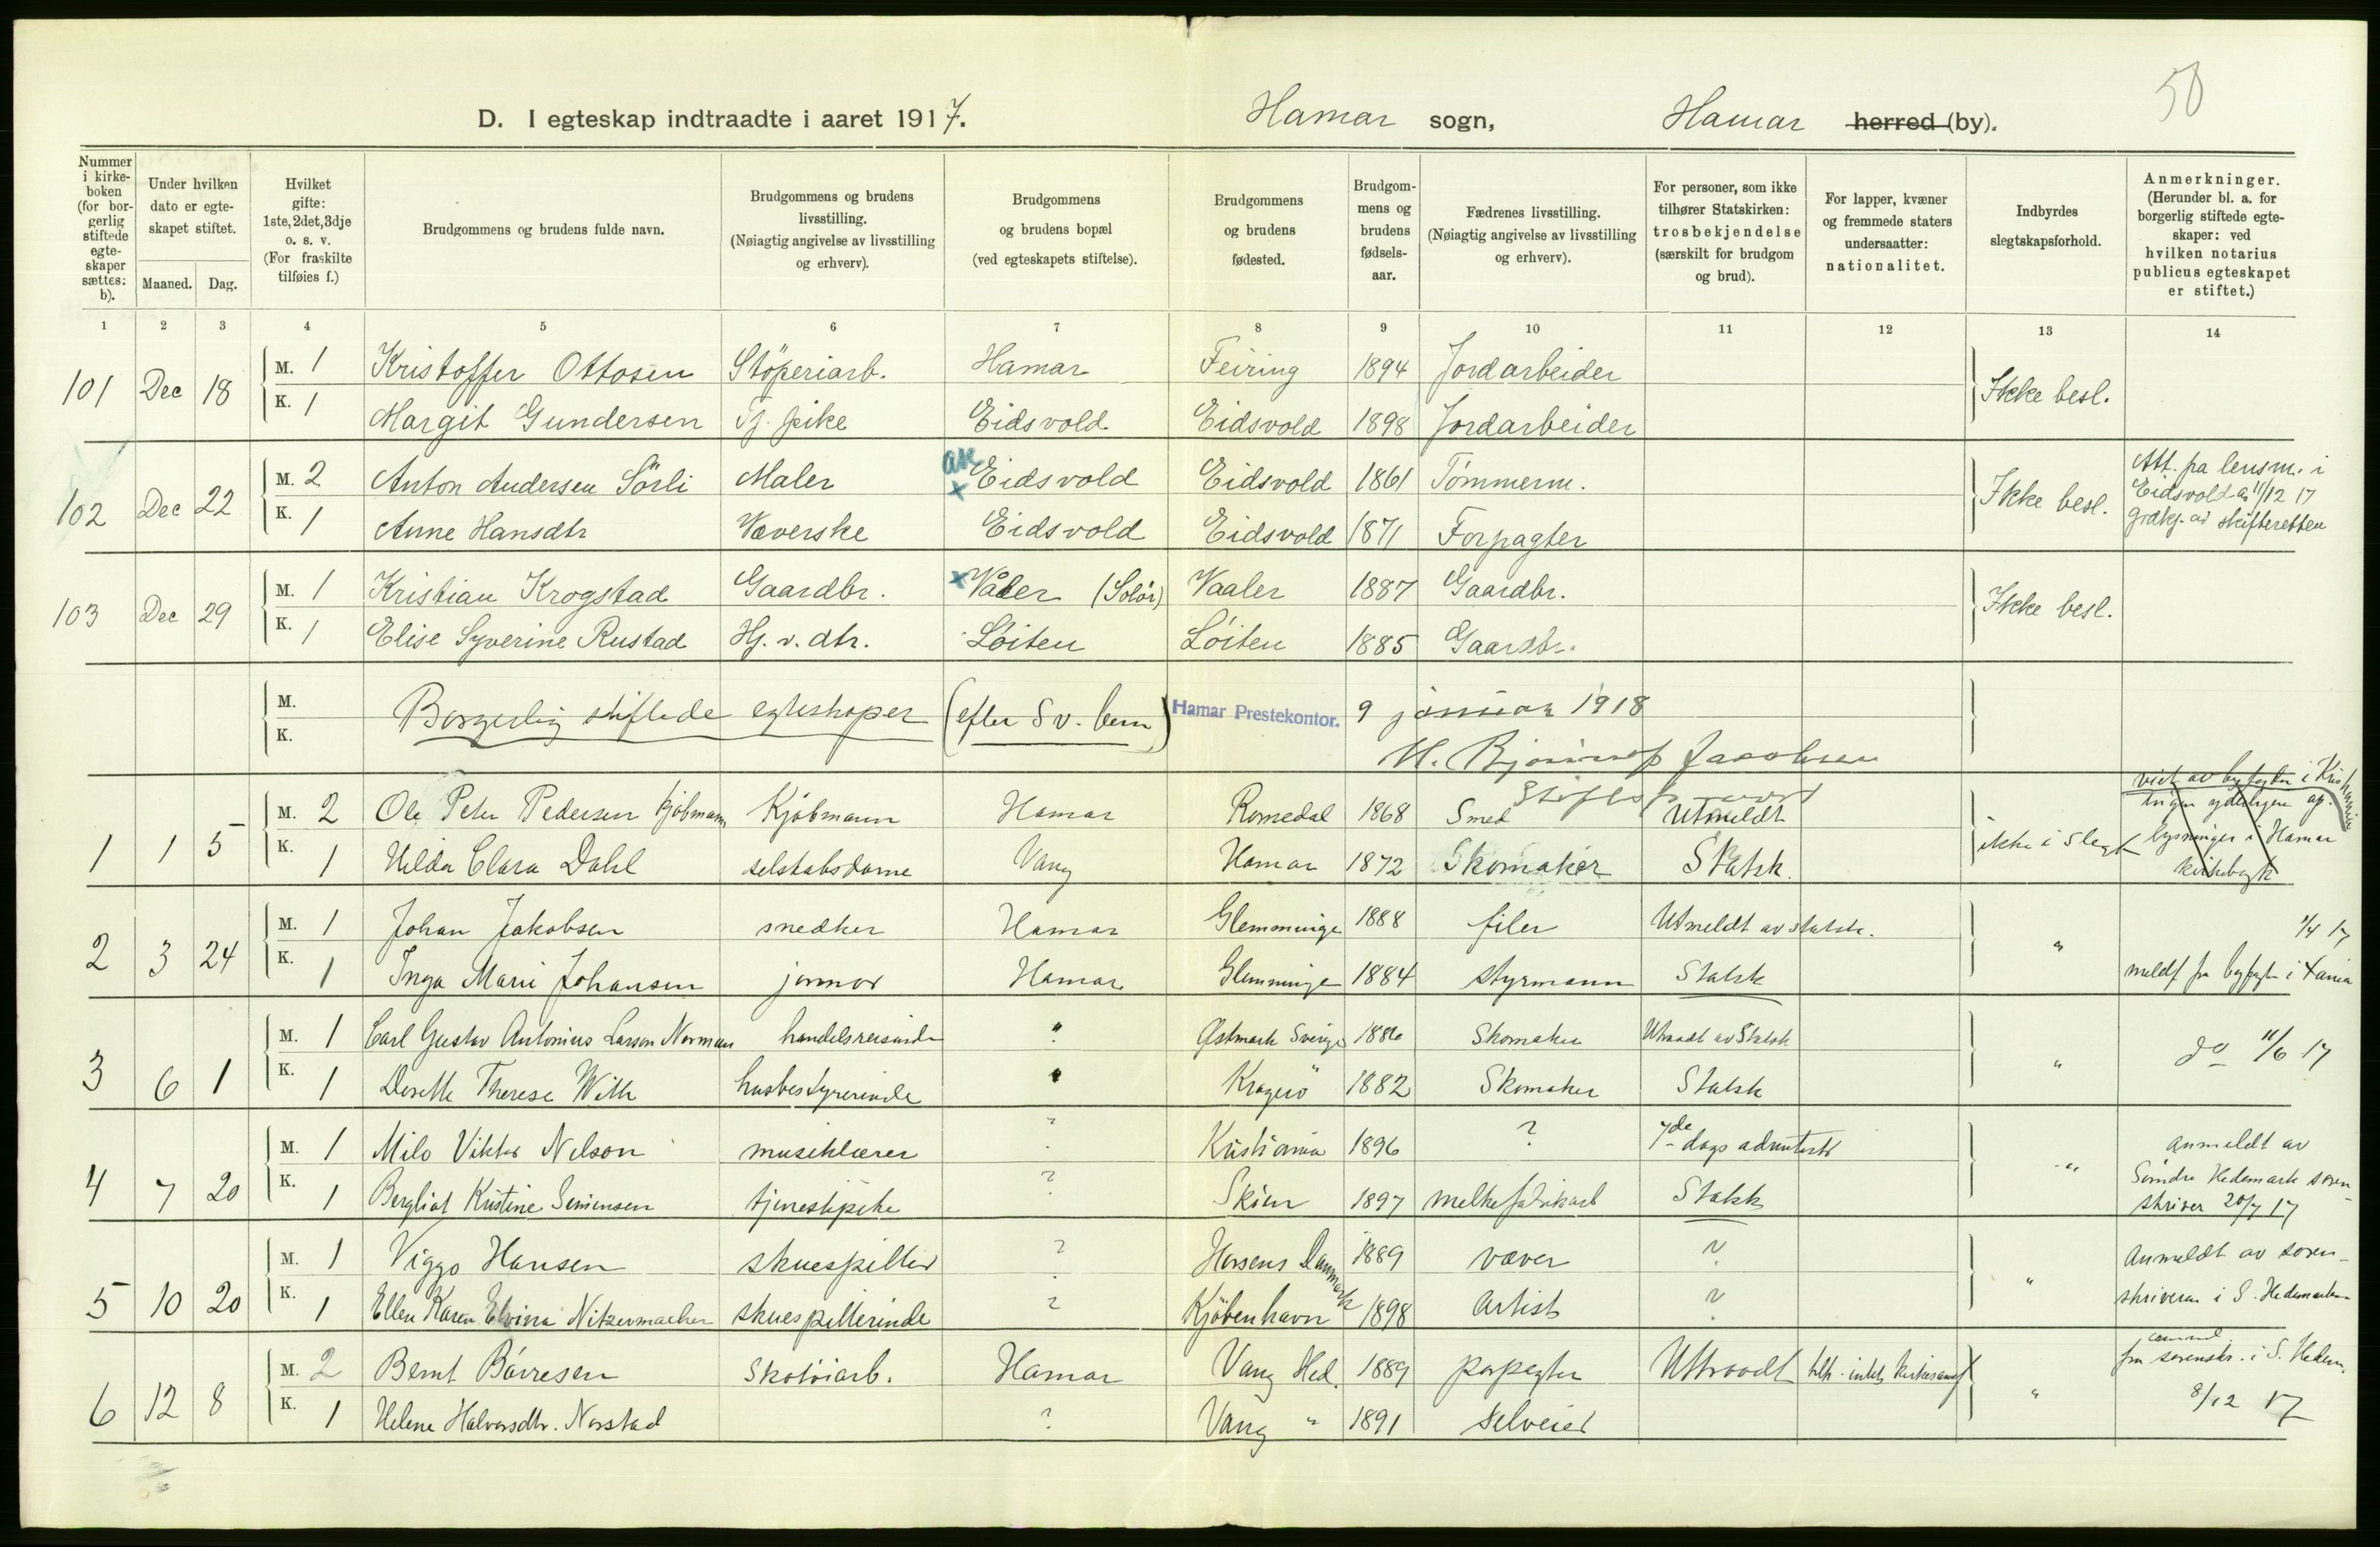 50
D. I egteskap indtraadte i aaret 1917. Hamar sogn, Hamar herred (by).
Nummer i kirke-boken (for bor-gerlig stiftede egte-skaper sættes: b).
Under hvilken dato er egte-skapet stiftet.
Maaned. Dag.
Hvilket gifte: 1ste, 2det, 3dje o. s. v. (For fraskilte tilføies f.)
Brudgommens og brudens fulde navn.
Brudgommens og brudens livsstilling. (Nøiagtig angivelse av livsstilling og erhverv).
Brudgommens og brudens bopæl (ved egteskapets stiftelse).
Brudgommens og brudens fødested.
Brudgom-mens og brudens fødsels-aar.
Fædrenes livsstilling. (Nøiagtig angivelse av livsstilling og erhverv).
For personer, som ikke tilhører Statskirken: trosbekjendelse (særskilt for brudgom og brud).
For lapper, kvæner og fremmede staters undersaatter: nationalitet.
Indbyrdes slegtskapsforhold.
Anmerkninger. (Herunder bl. a. for borgerlig stiftede egte-skaper: ved hvilken notarius publicus egteskapet er stiftet.)
1 2 3 4 5 6 7 8 9 10 11 12 13 14
101 Dec 18 M. 1 Kristoffer Ottosen Støperiarb. Hamar Feiring 1894 Jordarbeider Ikke besl.
K. 1 Margit Gundersen Tj. pike Eidsvold Eidsvold 1898 Jordarbeider
102 Dec 22 M. 2 Anton Andersen Sörli Maler Eidsvold Eidsvold 1861 Tømmerm. Ikke besl. Att. fra lensm. i Eidsvold 11/12 17
K. 1 Anne Hansdtr Væverske Eidsvold Eidsvold 1871 Forpagter skifteretten
103 Dec 29 M. 1 Kristian Krogstad Gaardbr. Våler (Solör) Vaaler 1887 Gaardbr. Ikke besl.
K. 1 Elise Syverine Rustad Hj. v. dtr. Löiten Löiten 1885 Gaardbr.
M. K. Borgerlig stiftede egteskaper (efter Sv. bem) Hamar Prestekontor. 9 januar 1918
1 1 5 M. 2 Ole Peter Pedersen kjøbmann Kjøbmann Hamar Romedal 1868 Smed Utmeldt ikke i slegt
K. 1 Hilda Clara Dahl selskabsdame Vang Hamar 1872 Skomaker Statsk.
2 3 24 M. 1 Johan Jakobsen snedker Hamar Glemminge 1888 filer Utmeldt av statsk. " 11/4 17
K. 1 Inga Marie Johansen jormor Hamar Glemminge 1884 styrmann Statsk meldt fra byfogden i Xania
3 6 1 M. 1 Carl Gustav Antonius Larson Norman handelsreisende " Østmark Sverige 1886 Skomaker Utraadt av Statsk " do 11/6 17
K. 1 Dorethe Therese With husbestyrerinde " Kragerö 1882 Skomaker Statsk
4 7 20 M. 1 Milo Viktor Nelson musiklærer ? Kristiania 1896 ? 7de dags adventists " anmeldt av
K. 1 Bergliot Kristine Simensen tjenestepike ? Skien 1897 melkefabrikarb Statsk Søndre Hedemark soren-
skriver 20/7 17
5 10 20 M. 1 Viggo Hansen skuespiller ? Horsens Danmark 1889 væver ? " Anmeldt av soren-
K. 1 Ellen Karen Elvina Nitzermacher skuespillerinde ? Kjøbenhavn 1898 artist ? skriveren i S. Hedemarken
6 12 8 M. 2 Bernt Børresen Skotöiarb. Hamar Vang Hed. 1889 forpagter Uttraadt " fra sorenskr. i S. Hedem.
K. 1 Helene Halvorsdtr. Norstad ? Vang " 1891 selveier 8/12 17